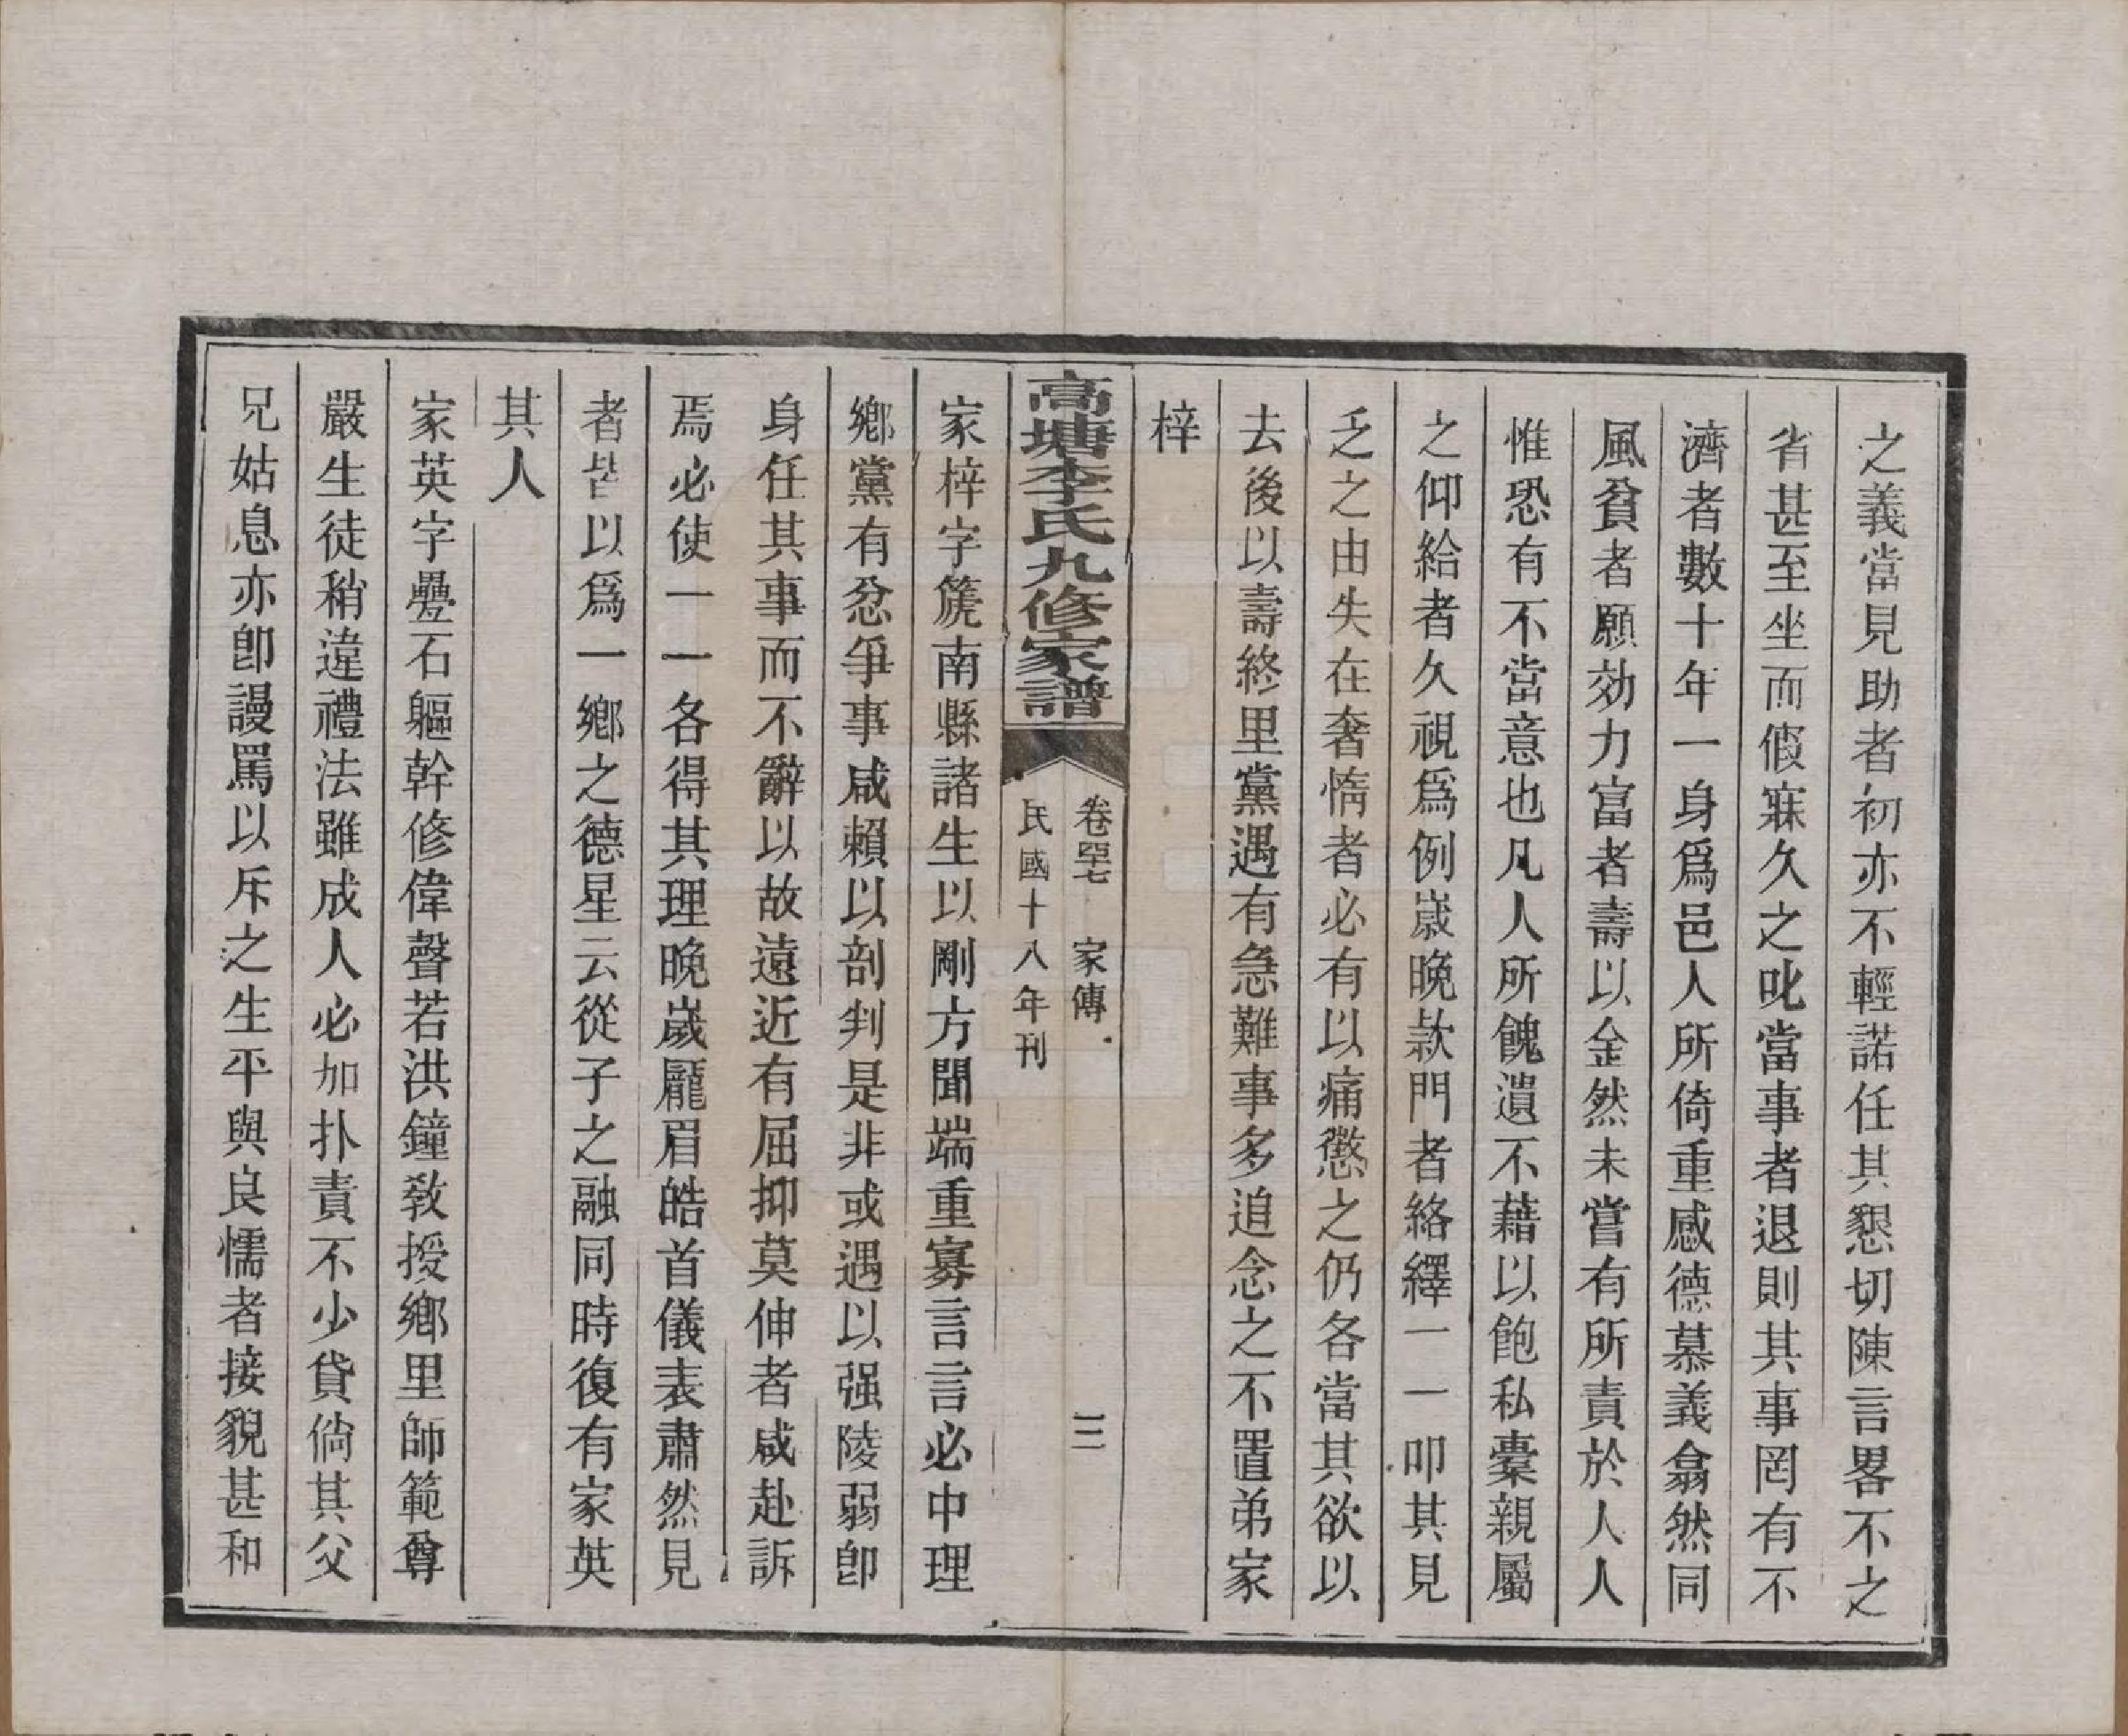 之義當見助者初亦不輕諾任其懇切陳言畧不之
省甚至坐而假寐久之叱當事者退則其事罔有不
濟者數十年一身爲邑人所倚重感德慕義翕然同
風貧者願効力富者壽以金然未嘗有所責於人人
惟恐有不當意也凡人所餽遺不藉以飽私橐親屬
之仰給者久視爲例歲晚款門者絡繹一一叩其見
乏之由失在奢惰者必有以痛懲之仍各當其欲以
去後以壽終里黨遇有急難事多追念之不置弟家
梓
高塘李氏九修家譜
卷四七 家傳 三
民國十八年刊
家梓字箎南縣諸生以剛方聞端重寡言言必中理
鄉黨有忿爭事咸賴以剖判是非或遇以强陵弱卽
身任其事而不辭以故遠近有屈抑莫伸者咸赴訴
焉必使一一各得其理晚歲龎眉皓首儀表肅然見
者皆以爲一鄉之德星云從子之融同時復有家英
其人
家英字疊石軀幹修偉聲若洪鐘敎授鄉里師範尊
嚴生徒稍違禮法雖成人必加扑責不少貸倘其父
兄姑息亦卽謾罵以斥之生平與良懦者接貌甚和